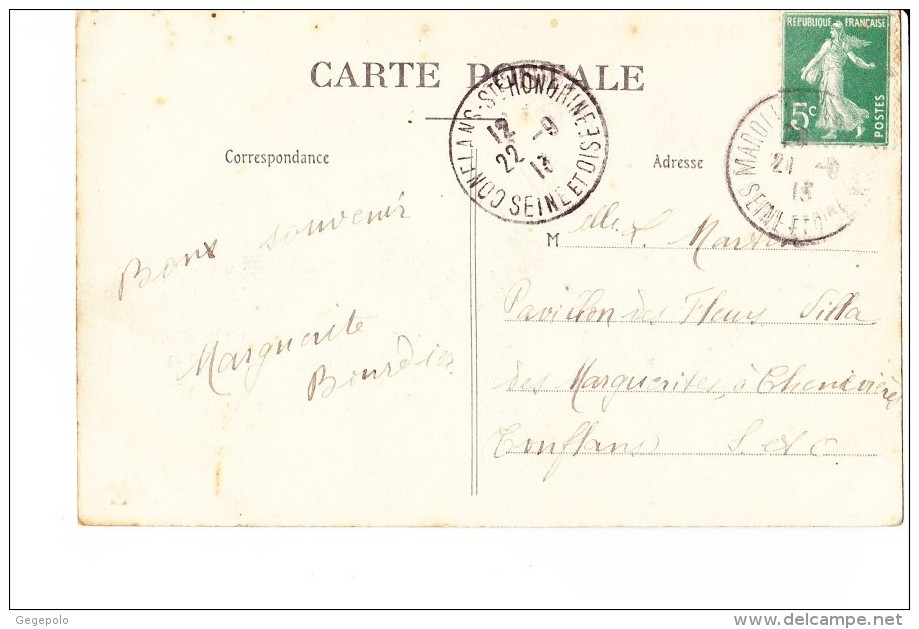 CARTE POSTALE
RÉPUBLIQUE FRANÇAISE
5c
POSTES
CONFLANS-STE HONORINE
12 -9
22 13
SEINE ET OISE
21 -
13
SEINE-ET-OISE
Correspondance
Adresse
Bons souvenir
Marguerite
Bourdier
M elle L. Martin
Pavillon des Fleurs Villa
des Marguerites, à Chenevières
Conflans S. et O
Gegepolo
delcampe.net